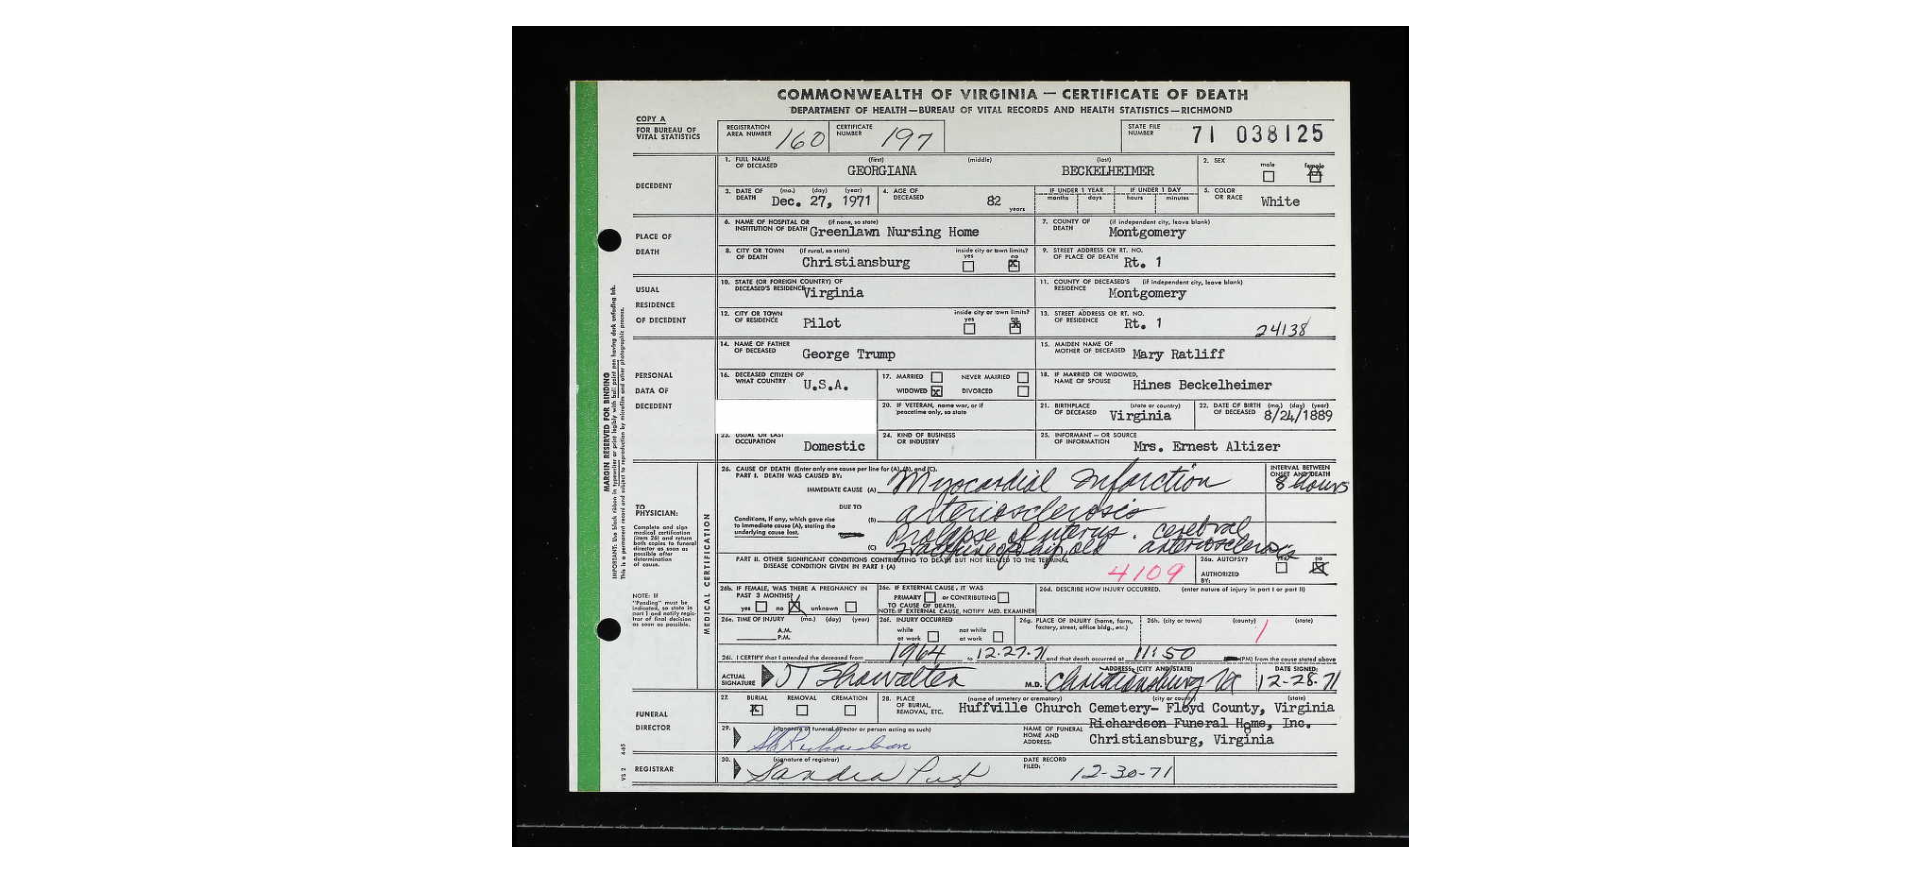 COMMONWEALTH OF VIRGINIA — CERTIFICATE OF DEATH
DEPARTMENT OF HEALTH—BUREAU OF VITAL RECORDS AND HEALTH STATISTICS—RICHMOND
COPY A
FOR BUREAU OF VITAL STATISTICS
REGISTRATION AREA NUMBER 160 CERTIFICATE NUMBER 197 STATE FILE NUMBER 71 038125
DECEDENT
1. FULL NAME OF DECEASED (first) GEORGIANA (middle) (last) BECKELHEIMER 2. SEX male female
3. DATE OF DEATH (mo.) (day) (year) Dec. 27, 1971 4. AGE OF DECEASED 82 years IF UNDER 1 YEAR months days IF UNDER 1 DAY hours minutes 5. COLOR OR RACE White
PLACE OF DEATH
6. NAME OF HOSPITAL OR INSTITUTION OF DEATH (if none, so state) Greenlawn Nursing Home 7. COUNTY OF DEATH (if independent city, leave blank) Montgomery
8. CITY OR TOWN OF DEATH (if rural, so state) Christiansburg inside city or town limits? yes no 9. STREET ADDRESS OR RT. NO. OF PLACE OF DEATH Rt. 1
USUAL RESIDENCE OF DECEDENT
10. STATE (OR FOREIGN COUNTRY) OF DECEASED'S RESIDENCE Virginia 11. COUNTY OF DECEASED'S RESIDENCE (if independent city, leave blank) Montgomery
12. CITY OR TOWN OF RESIDENCE Pilot inside city or town limits? yes no 13. STREET ADDRESS OR RT. NO. OF RESIDENCE Rt. 1 24138
PERSONAL DATA OF DECEDENT
14. NAME OF FATHER OF DECEASED George Trump 15. MAIDEN NAME OF MOTHER OF DECEASED Mary Ratliff
16. DECEASED CITIZEN OF WHAT COUNTRY U.S.A. 17. MARRIED NEVER MARRIED WIDOWED DIVORCED 18. IF MARRIED OR WIDOWED, NAME OF SPOUSE Hines Beckelheimer
20. IF VETERAN, name war, or if peacetime only, so state 21. BIRTHPLACE OF DECEASED (state or country) Virginia 22. DATE OF BIRTH OF DECEASED (mo.) (day) (year) 8/24/1889
23. USUAL OR LAST OCCUPATION Domestic 24. KIND OF BUSINESS OR INDUSTRY 25. INFORMANT — OR SOURCE OF INFORMATION Mrs. Ernest Altizer
MARGIN RESERVED FOR BINDING
TO PHYSICIAN:
Complete and sign medical certification (item 26) and return both copies to funeral director as soon as possible after determination of cause.
NOTE: If "Pending" must be indicated, so state in part I and notify registrar of final decision as soon as possible.
MEDICAL CERTIFICATION
26. CAUSE OF DEATH (Enter only one cause per line for (A), (B), and (C).
PART I. DEATH WAS CAUSED BY: INTERVAL BETWEEN ONSET AND DEATH
IMMEDIATE CAUSE (A) Myocardial Infarction 8 hours
DUE TO
Conditions, if any, which gave rise to immediate cause (A), stating the underlying cause last.
(B) arteriosclerosis
(C) Prolapse of uterus. cerebral
Fracture of hip old arteriosclerosis
PART II. OTHER SIGNIFICANT CONDITIONS CONTRIBUTING TO DEATH BUT NOT RELATED TO THE TERMINAL DISEASE CONDITION GIVEN IN PART I (A) 4109 26a. AUTOPSY? AUTHORIZED BY:
26b. IF FEMALE, WAS THERE A PREGNANCY IN PAST 3 MONTHS? yes no unknown 26c. IF EXTERNAL CAUSE, IT WAS PRIMARY or CONTRIBUTING TO CAUSE OF DEATH. NOTE: IF EXTERNAL CAUSE, NOTIFY MED. EXAMINER 26d. DESCRIBE HOW INJURY OCCURRED. (enter nature of injury in part I or part II)
26e. TIME OF INJURY (mo.) (day) (year) A.M. P.M. 26f. INJURY OCCURRED while at work not while at work 26g. PLACE OF INJURY (home, farm, factory, street, office bldg., etc.) 26h. (city or town) (county) (state)
26i. I CERTIFY that I attended the deceased from 1964 to 12-27-71 and that death occurred at 11:50 (PM) from the cause stated above
ACTUAL SIGNATURE JT Showalter M.D. ADDRESS: (CITY AND STATE) Christiansburg Va DATE SIGNED: 12-28-71
FUNERAL DIRECTOR
27. BURIAL REMOVAL CREMATION 28. PLACE OF BURIAL, REMOVAL, ETC. (name of cemetery or crematory) (city or county) (state) Huffville Church Cemetery- Floyd County, Virginia
29. (signature of funeral director or person acting as such) Richardson NAME OF FUNERAL HOME AND ADDRESS: Richardson Funeral Home, Inc.
Christiansburg, Virginia
REGISTRAR
30. (signature of registrar) Sandra Pugh DATE RECORD FILED: 12-30-71
VS 2